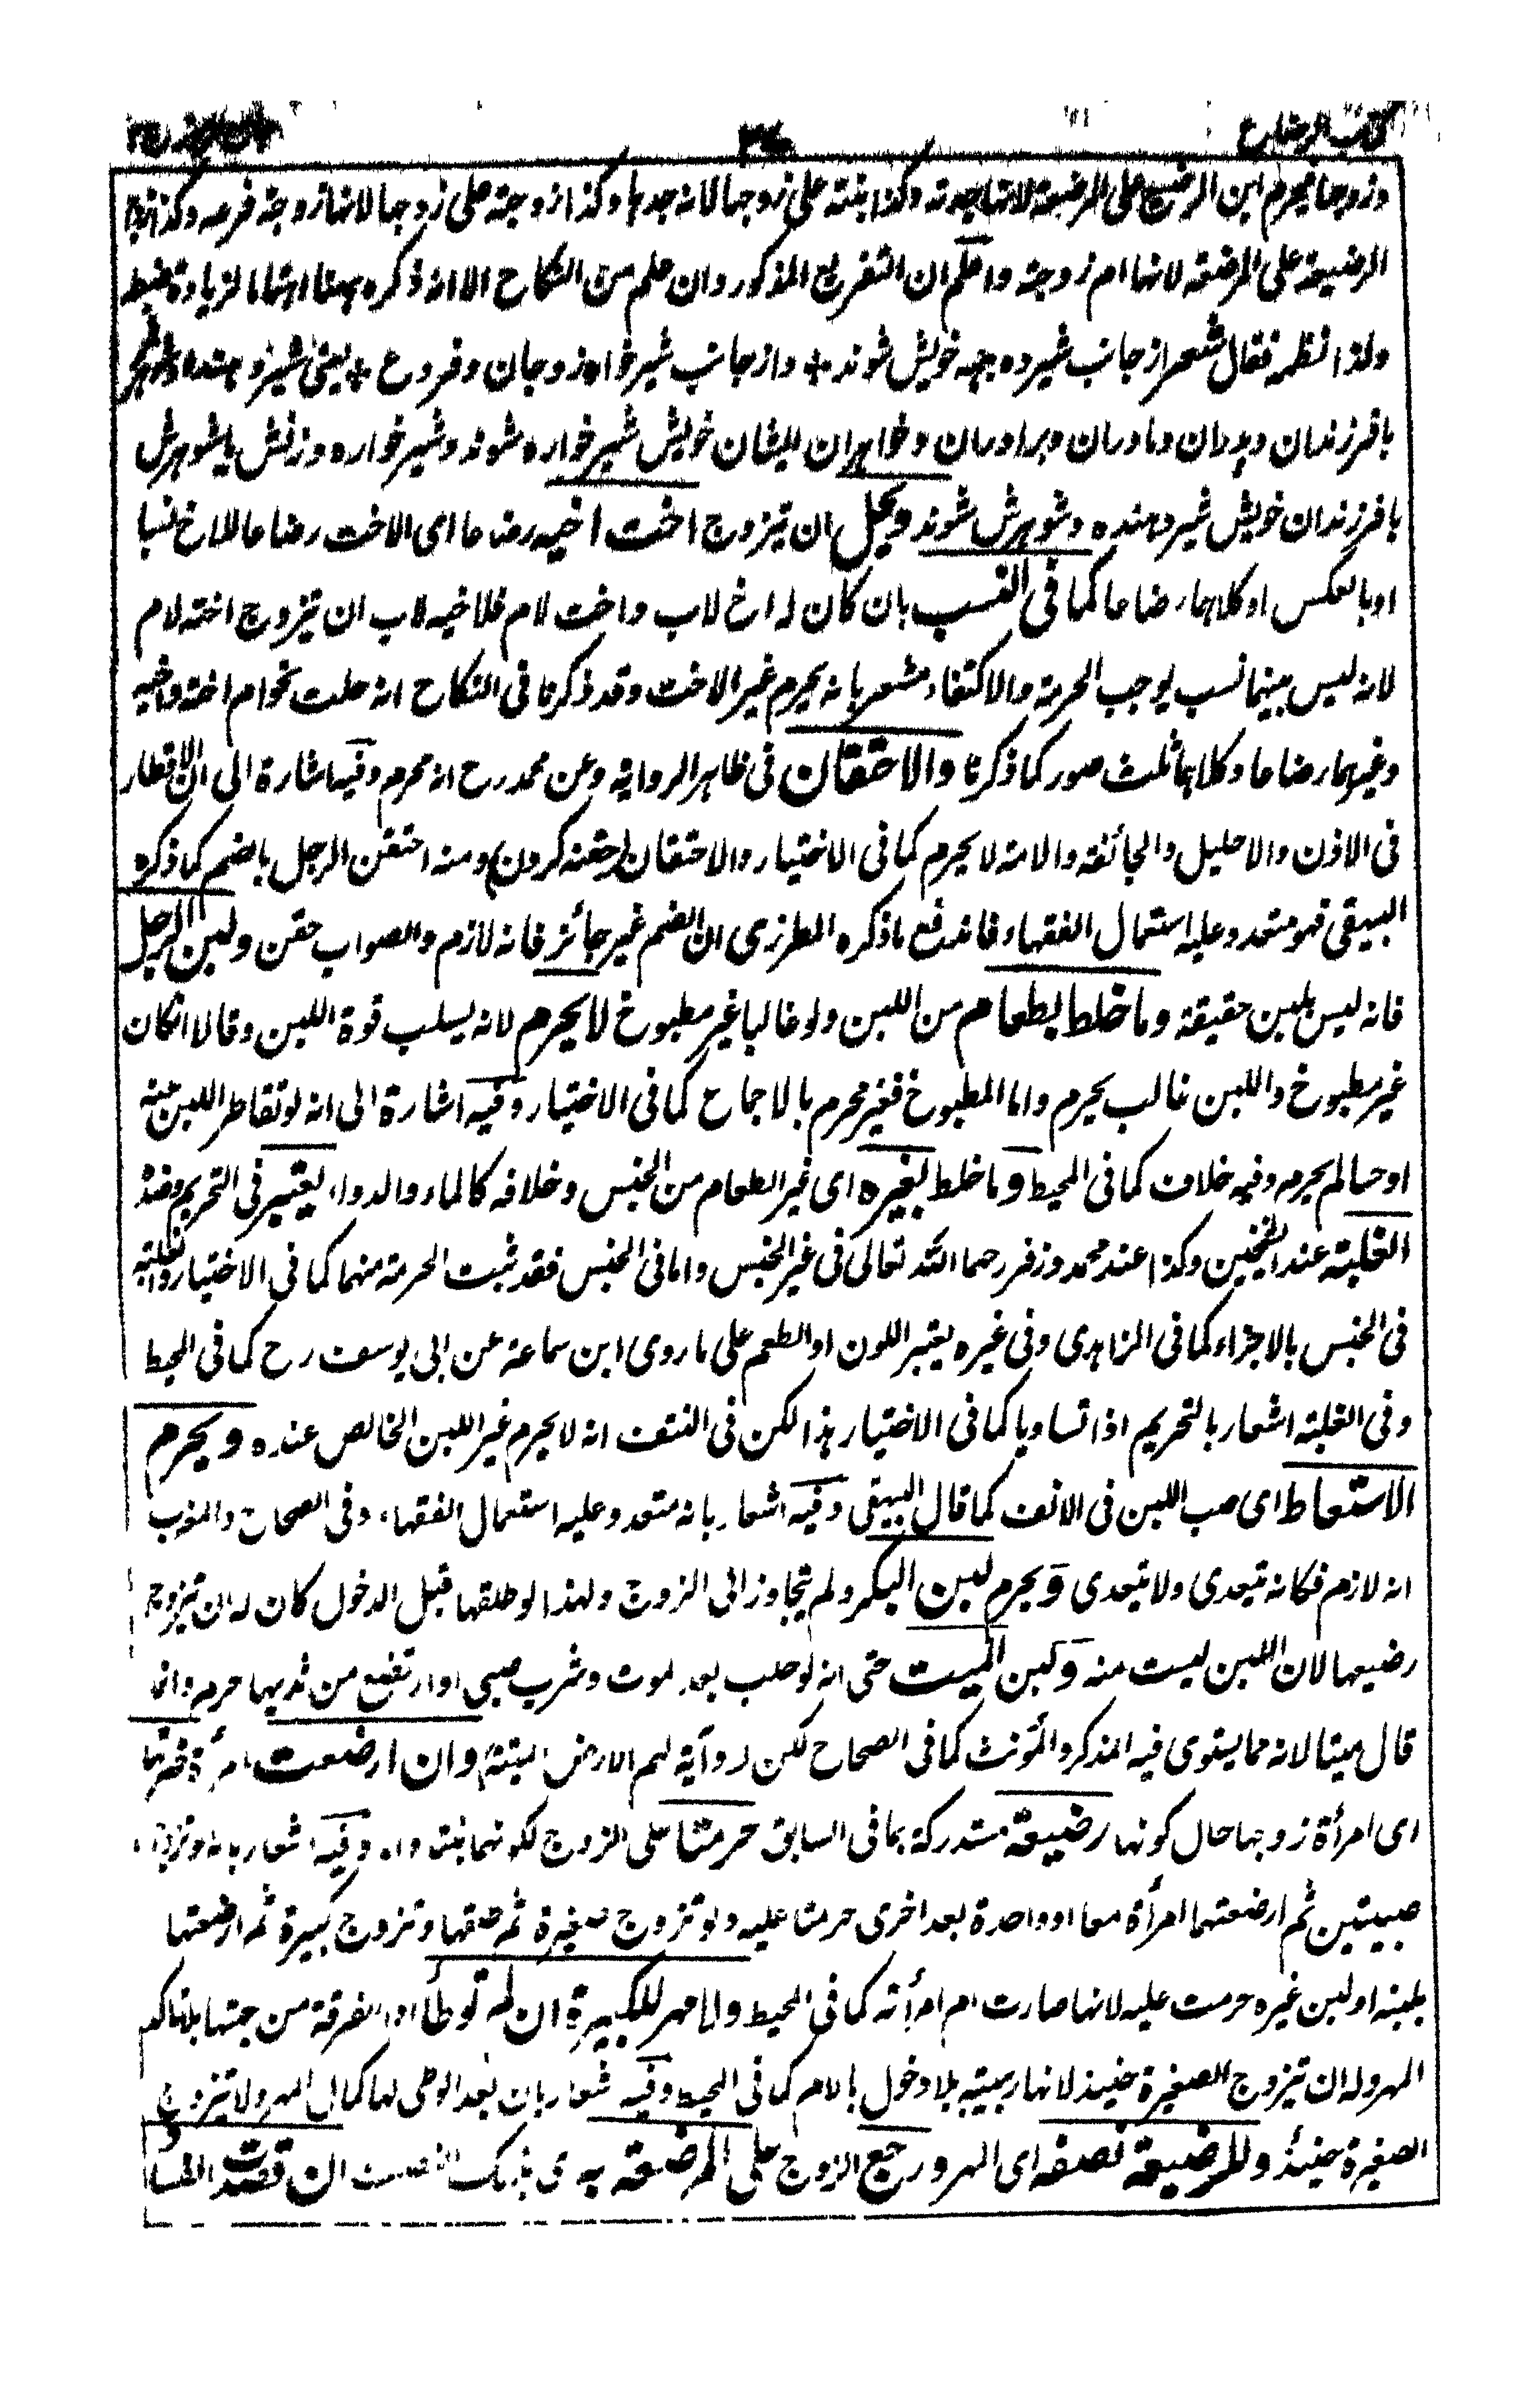 كتاب الرضاع
وزوجها فيحرم ابن الرضيع على المرضعة لانها جدته وكذا بنته على زوجها لانه جدها وكذا زوجته على زوجها لانها زوجة فرعه وكذا
الرضيعة على المرضعة لانها ام زوجته واعلم ان التفريع المذكور وان علم من النكاح الا انه ذكره ههنا اهتماما لزيادة ضبط
ولذا نظمه فقال شعر از جانب شيرده همه خويش شوند * واز جانب شيرخواره زوجان وفروع * يعنى شير دهنده
با فرزندان وپدران ومادران وبرادران وخواهران ايشان خويش شيرخواره شوند وشيرخواره وزنش يا شوهرش
با فرزندان خويش شيردهنده وشوهرش شوند ويحل ان يتزوج اخت اخيه رضاعا اى الاخت رضاعا للاخ نسبا
او بالعكس او كلاهما رضاعا كما فى النسب بان كان له اخ لاب واخت لام فلاخيه لاب ان يتزوج اخته لام
لانه ليس بينهما نسب يوجب الحرمة والاكتفاء مشعر بانه يحرم غير الاخت وقد ذكرنا فى النكاح انه حلت نحو ام اخته واخيه
وغيرهما رضاعا وكلاهما ثلث صور كما ذكرنا والاحتقان فى ظاهر الرواية وعن محمد رح انه محرم وفيه اشارة الى ان الاقطار
فى الاذن والاحليل والجائفة والآمة لا يحرم كما فى الاختيار والاحتقان (حقنه كردن) ومنه احتقن الرجل بالضم كما ذكره
البيهقى فهو متعد وعليه استعمال الفقهاء فاندفع ما ذكره المطرزى ان الضم غير جائز فانه لازم والصواب حقن ولبن الرجل
فانه ليس بلبن حقيقة وما خلط بطعام من اللبن ولو غالبا غير مطبوخ لا يحرم لانه يسلب قوة اللبن وقالا ان كان
غير مطبوخ واللبن غالب يحرم واما المطبوخ فغير محرم بالاجماع كما فى الاختيار وفيه اشارة الى انه لو تقاطر اللبن منه
او حسا لم يحرم وفيه خلاف كما فى المحيط وما خلط بغيره اى غير الطعام من الجنس وخلافه كالماء والدواء يعتبر فى التحريم وضده
الغلبة عند الشيخين وكذا عند محمد وزفر رحمها الله تعالى فى غير الجنس واما فى الجنس فقد ثبت الحرمة منهما كما فى الاختيار والغلبة
فى الجنس بالاجزاء كما فى الزاهدى وفى غيره يعتبر اللون او الطعم على ما روى ابن سماعة عن ابى يوسف رح كما فى المحيط
وفى الغلبة اشعار بالتحريم اذا تساويا كما فى الاختيار هذا لكن فى النتف انه لا يحرم غير اللبن الخالص عنده ويحرم
الاستعاط اى صب اللبن فى الانف كما قال البيهقى وفيه اشعار بانه متعد وعليه استعمال الفقهاء وفى الصحاح والمغرب
انه لازم فكانه يتعدى ولا يتعدى ويحرم لبن البكر ولم يتجاوز الى الزوج ولهذا لو طلقها قبل الدخول كان له ان يتزوج
رضيعها لان اللبن ليست منه ولبن الميت حتى انه لو حلب بعد الموت وشرب صبى او ارتضع من ثديها حرم وانما
قال ميتا لانه مما يستوى فيه المذكر والمؤنث كما فى الصحاح لكن رواية لهم الارض الميتة وان ارضعت امرأة ضرتها
اى امرأة زوجها حال كونها رضيعة مستدركة بما فى السابق حرمتا على الزوج لكونهما بنتا واما وفيه اشعار بانه لو تزوج
صبيتين ثم ارضعتهما امرأة معا او واحدة بعد اخرى حرمتا عليه ولو تزوج صغيرة ثم طلقها وتزوج كبيرة ثم ارضعتها
بلبنه او لبن غيره حرمت عليه لانها صارت ام امرأته كما فى المحيط ولا مهر للكبيرة ان لم توطأ اذ الفرقة من جهتها
المهر وله ان يتزوج الصغيرة حينئذ لانها ربيبته بلا دخول بالام كما فى المحيط وفيه اشعار بان بعد الوطى لها كمال المهر ولا يتزوج
الصغيرة حينئذ وللرضيعة نصفه اى المهر ورجع الزوج على المرضعة به اى بذلك النصف ان قصدت الفساد